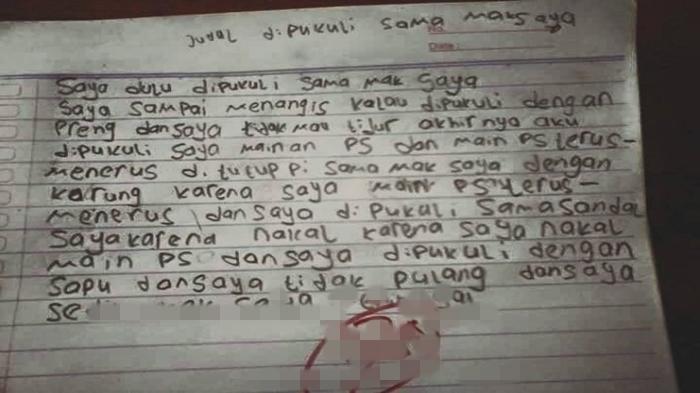 Judul dipukuli sama mak saya
No.
Date:
Saya dulu dipukuli sama mak saya
Saya sampai menangis kalau dipukuli dengan
Preng dan saya tidak mau tidur akhirnya aku
dipukuli saya mainan PS dan main PS terus-
menerus di tutup pi sama mak saya dengan
karung karena saya main PS terus-
menerus dan saya di pukuli sama sandal
saya karena nakal karena saya nakal
main PS dan saya dipukuli dengan
sapu dan saya tidak pulang dan saya
se